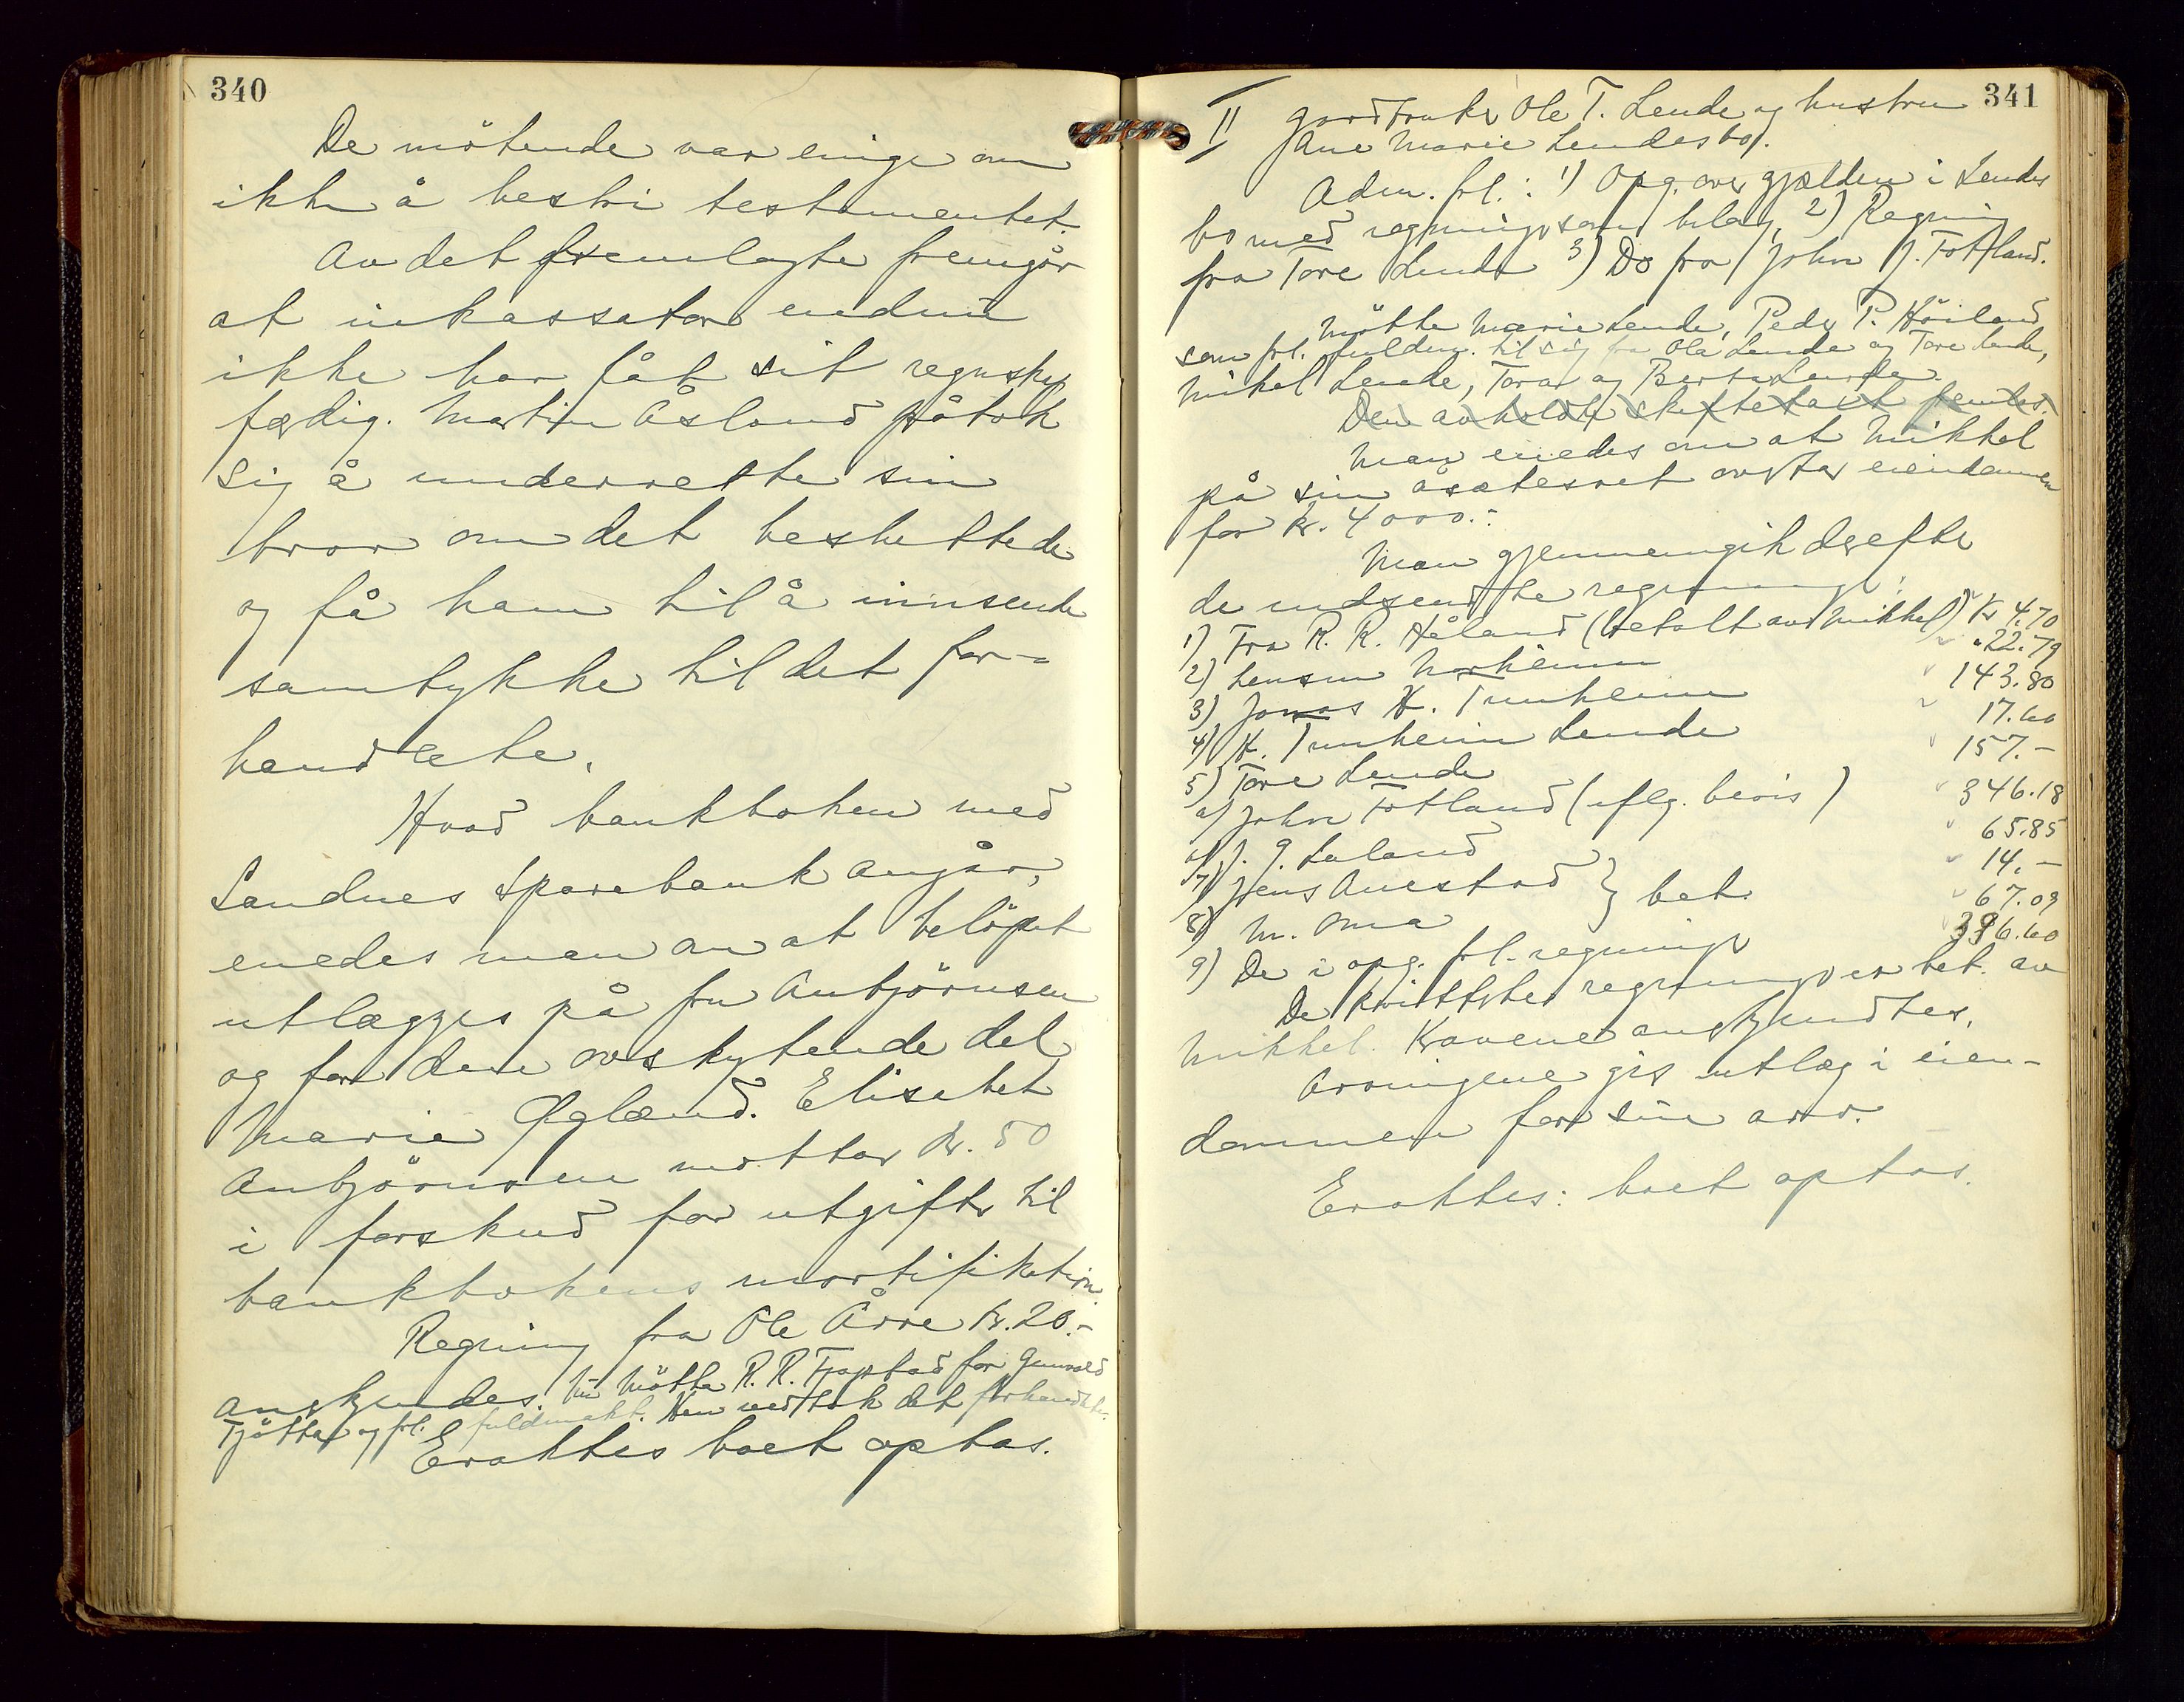 340
De mötende var enige om
ikke å bestri testamentet.
Av det fremlagte fremgår
at inkassator endnu
ikke har fåt sit regnskap
færdig. Martin Åsland påtok
sig å underrette sin
bror om det besluttede
og få ham til å innsende
samtykke til det for-
handlete.
Hvad bankboken med
Sandnes Sparebank angår,
enedes man om at belöpet
utlægges på fru Anbjörnsen
og for den overskytende del
Marie Øgland. Elisabet
Anbjörnsen mottar kr. 50
i forskud for utgifter til
bankbokens mortifikation.
Regning fra Ole Årre kr. 20.-
anerkjendes. Nu mötte R. R. Tjøstad for Gunvald
Tjötta og frl. fuldmakt. Han vedtok det forhandlete.
Eraktes boet optas.
341
II gardbruker Ole T. Lende og hustru
Ane Marie Lendes bo.
Adm. frl.: 1) Opg. over gjælden i Lendes
bo med regninger som bilag, 2) Regning
fra Tore Lende 3) Do fra John J. Fotland.
Mötte Marie Lende, Peder P. Höiland
som frl. fuldm. til sig fra Ola Lende og Tore Lende,
Mikal Lende, Torar og Berta Lende.
Den avholdte skiftetakt fremles.
Man enedes om at Mikkel
på sin åsætesret overtar eiendommen
for kr. 4000.-
Man gjennemgik derefter
de indsendte regninger:
1) Fra R. R. Håland (betalt av Mikkel) Kr 4.70
2) Lensm Norheim " 22.79
3) Jonas H. Tunheim 143.80
4) H. Tunheim Lende 17.60
5) Tore Lende 157.-
6) John Fotland (iflg. bevis) 346.18
6) J. G. Laland 65.85
7) Jens Auestad } bet. 14.-
8) M. Oma 67.09
9) De i opg. frl. regninger 396.60
De kvitterte regninger er bet. av
Mikkel. Kravene anerkjendtes.
Arvingene gis utlæg i eien-
dommen for sin arv.
Eraktes: boet optas.